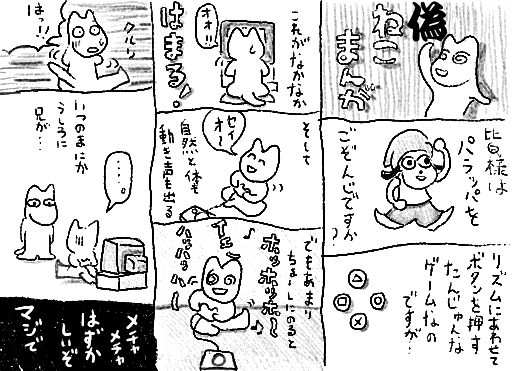 偽
ねこ
まんが
皆様は
パラッパを
ごぞんじですか?
リズムにあわせて
ボタンを押す
たんじゅんな
ゲームなの
ですが…
これがなかなか
オオ!!
はまる!
そして
セイ
オ〜
自然と体も
動き声も出る
でもあまり
ちょーしにのると
ホッホッホー
イェー
ハッハッハー
クルッ
はっ!!
いつのまにか
うしろに
兄が…
・・・・。
メチャ
メチャ
はずか
しいぞ
マジで